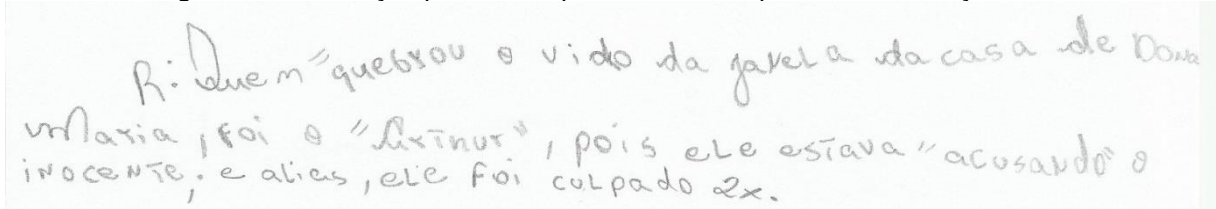 R: Quem "quebrou o vido da janela da casa de Dona
Maria, foi o "Artnur", pois ele estava "acusando" o
inocente; e alias, ele foi culpado 2x.